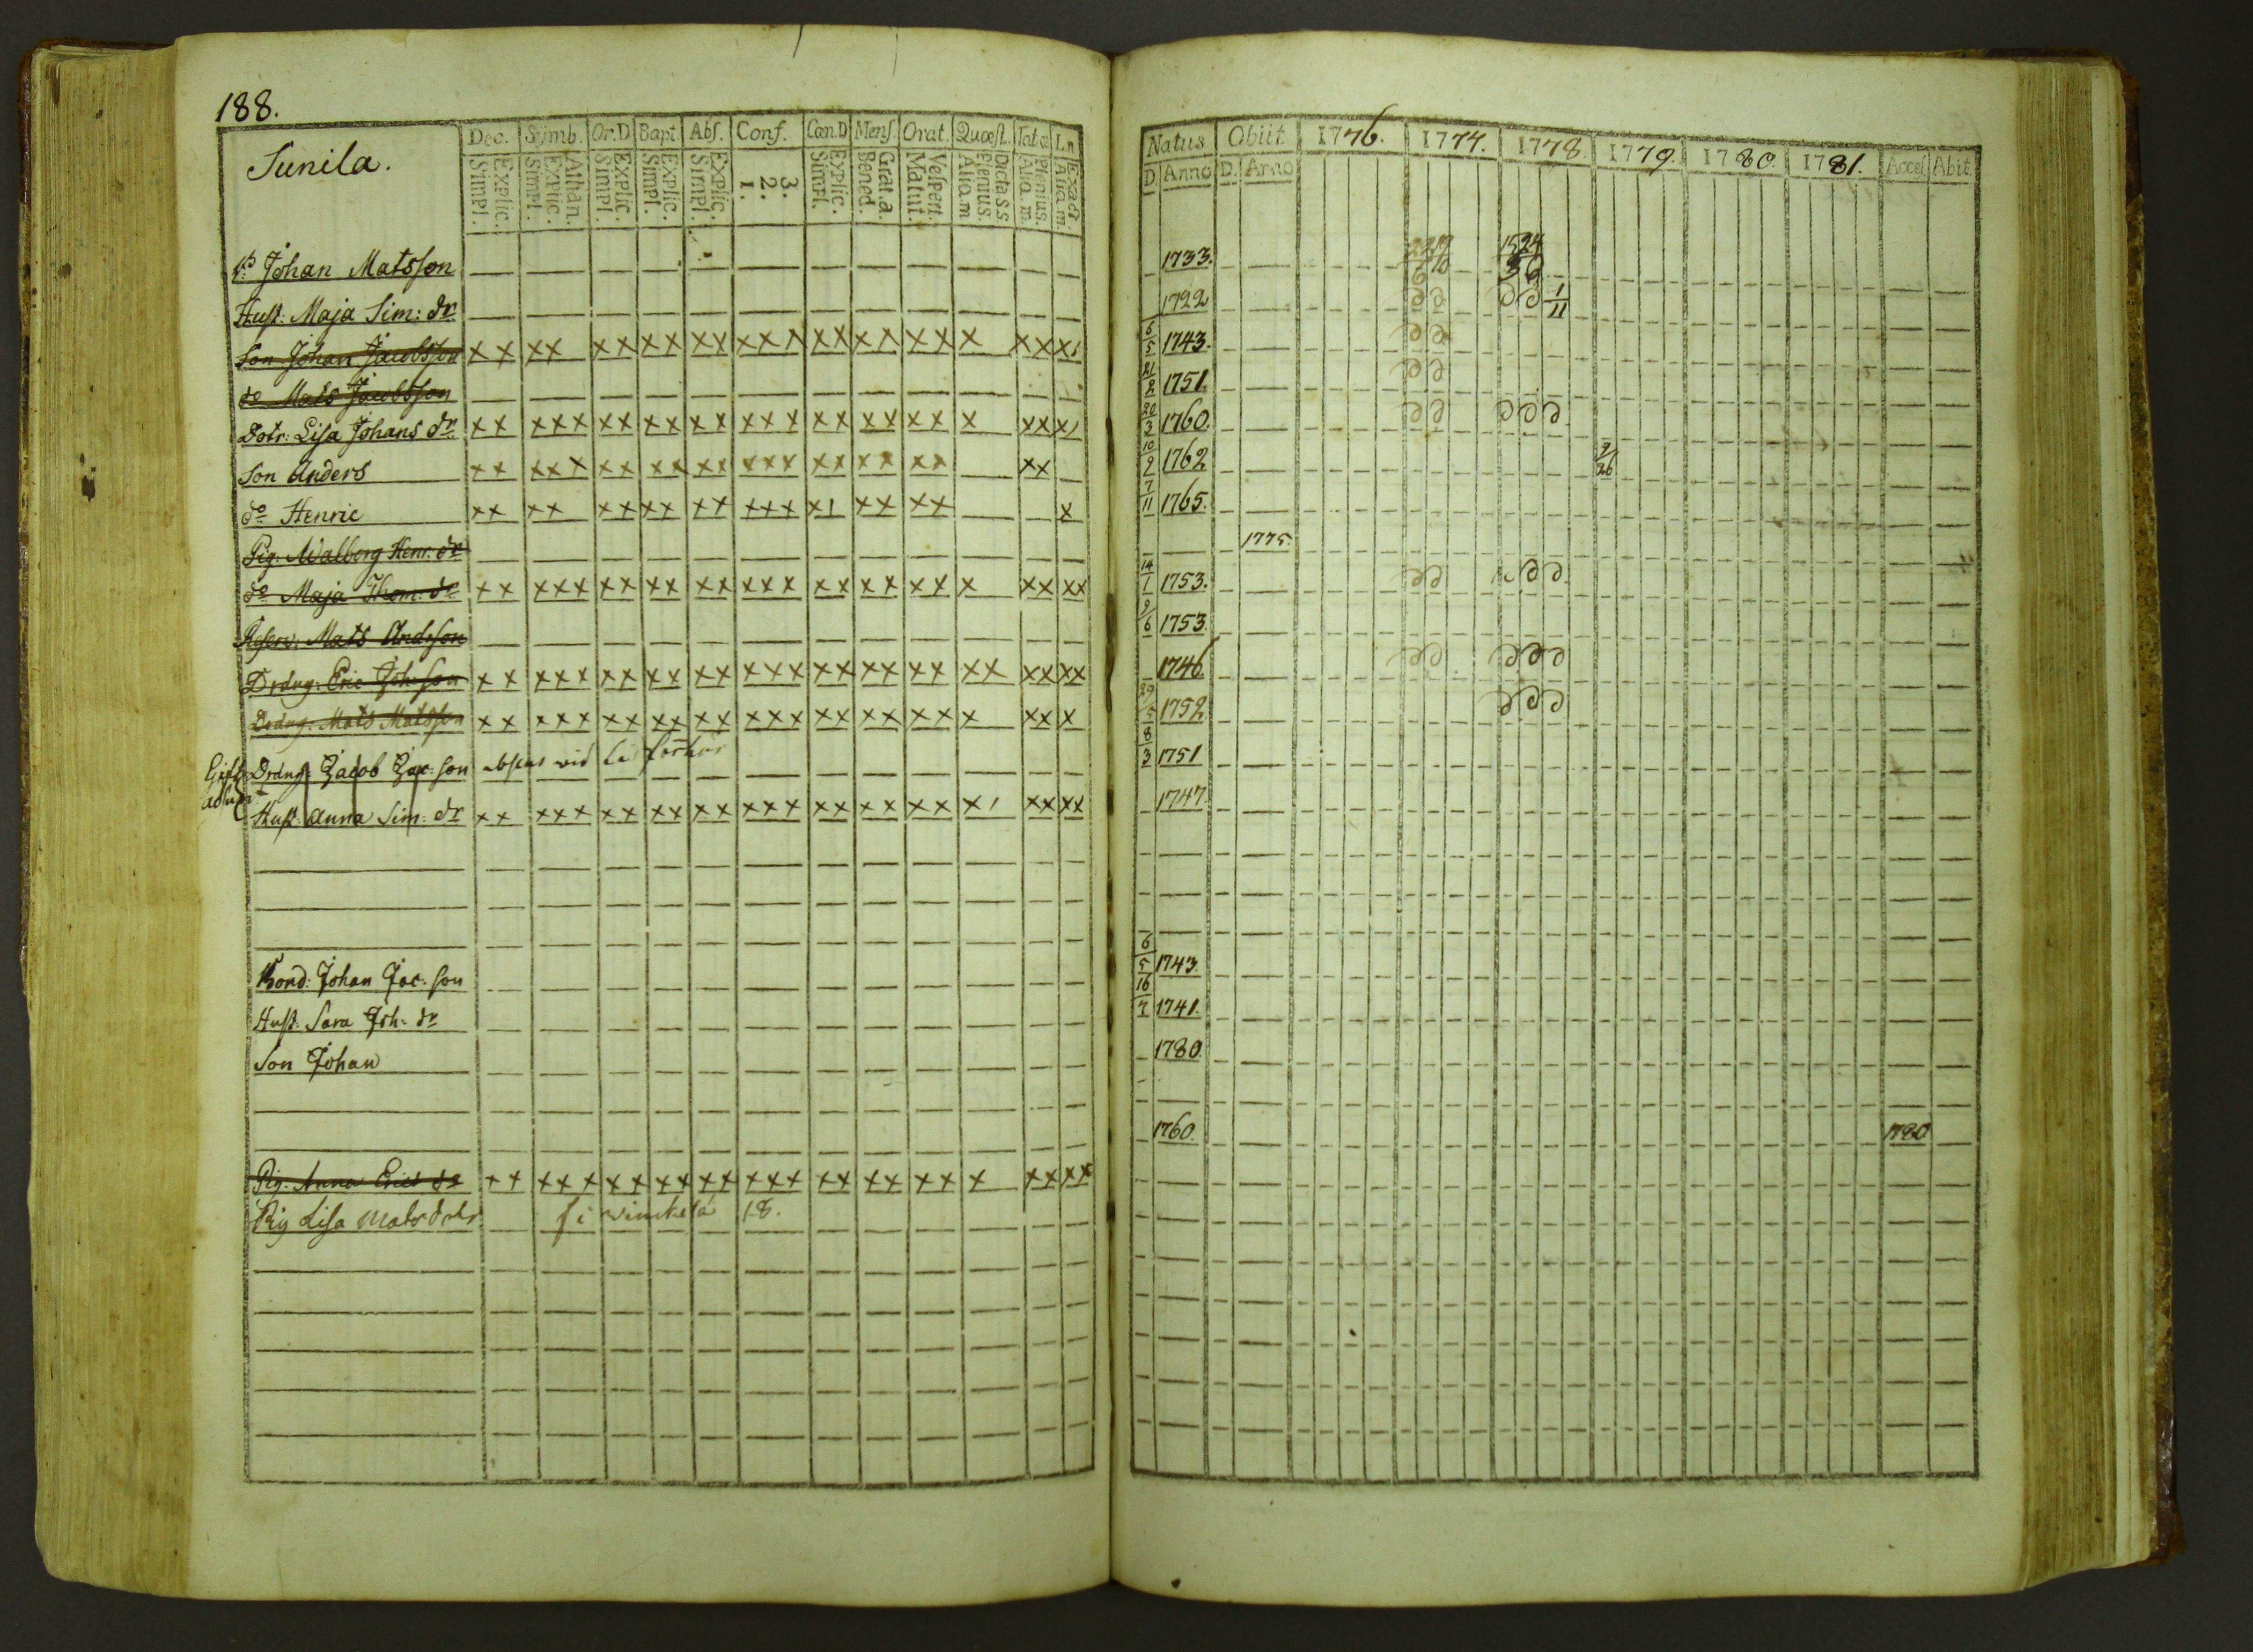 188.
Sunila.
Dec. Symb. Or.D Bapt. Abs. Conf. Cœn.D Mens. Orat. Quæst. Tot œ L.n
Explic. Simpl. Athan. Explic. Simpl. Explic. Simpl. Explic. Simpl. Explic. Simpl. 3. 2. 1. Explic. Simpl. Grat.a. Bened. Vespert. Matut. Dicta s s Plenius. Aliq.m Plenius. Aliq.m. Exact Aliq.m.
Johan Matsson
Hust: Maja Sim: dr
Son Johan Jacobsson x x x x x x x x x x x x x x x x x x x x x x x
do Mats Jacobsson
Dotr: Lisa Johans dr x x x x x x x x x x x x x x x x x x x x x x x x
Son Anders x x x x x x x x x x x x x x x x x x x x x x
do Henric x x x x x x x x x x x x x x x x x x x x
Pig. Walborg Henr. dr
do Maja Thom: dr x x x x x x x x x x x x x x x x x x x x x x x x x x
Reserv: Mats Andsson
Drdng: Eric Joh: son x x x x x x x x x x x x x x x x x x x x x x x x x x
Drdng: Mats Matsson x x x x x x x x x x x x x x x x x x x x x x x x
Drdng: Jacob Jac: son
Hust: Anna Sim: dr x x x x x x x x x x x x x x x x x x x x x x x x x
Bond: Johan Jac: son
Hust: Sara Joh: dr
Son Johan
Pig. Anna Erics dr x x x x x x x x x x x x x x x x x x x x x x x x x
Pig Lisa Mats dotr 18.
Natus Obiit 1776. 1777. 1778. 1779. 1780. 1781. Acces. Abit.
D Anno D. Anno
1733.
1722 1/11
6/5 1743.
21/2 1751.
20/3 1760.
10/9 1762
7/11 1765.
1775.
14/1 1753.
9/6 1753.
1746.
29/5 1752
8/3 1751
1747.
6/5 1743.
16/7 1741.
1780.
1760. 1780